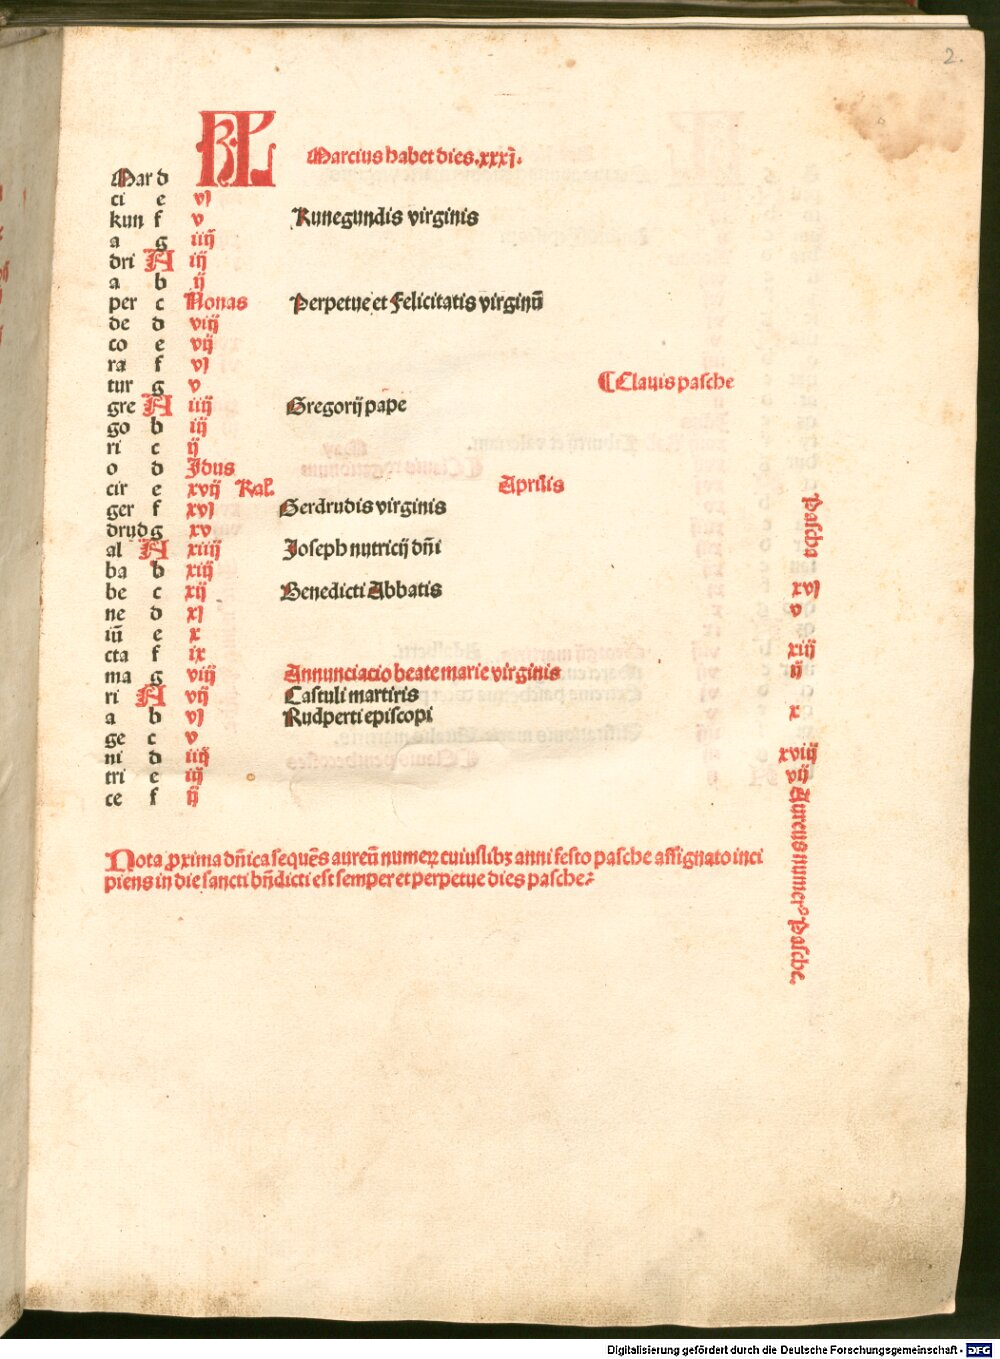 2.
KL Marcius habet dies .xxxj.
Mar d
ci e vj
kun f v Kunegundis virginis
a g iiij
dri A iij
a b ij
per c Nonas Perpetue et Felicitatis virginū
de d viij
co e vij
ra f vj
tur g v ¶Clauis pasche
gre A iiij Gregorij pape
go b iij
ri c ij
o d Jdus
cir e xvij Kal'. Aprilis
ger f xvj Gerdrudis virginis
drud g xv
al A xiiij Joseph nutricij dn̄i
ba b xiij
be c xij Benedicti Abbatis xvj
ne d xj v
iū e x
cta f ix xiij
ma g viij Annunciacio beate marie virginis ij
ri A vij Castuli martiris
a b vj Rudperti episcopi x
ge c v
ni d iiij xviij
tri e iij vij
ce f ij
Pascha
Aureus numerꝰ Pasche.
Nota ꝓxima dn̄ica sequēs aureū numeꝝ cuiuslibꝫ anni festo pasche assignato inci
piens in die sancti bn̄dicti est semper et perpetue dies pasche:
Digitalisierung gefördert durch die Deutsche Forschungsgemeinschaft - DFG